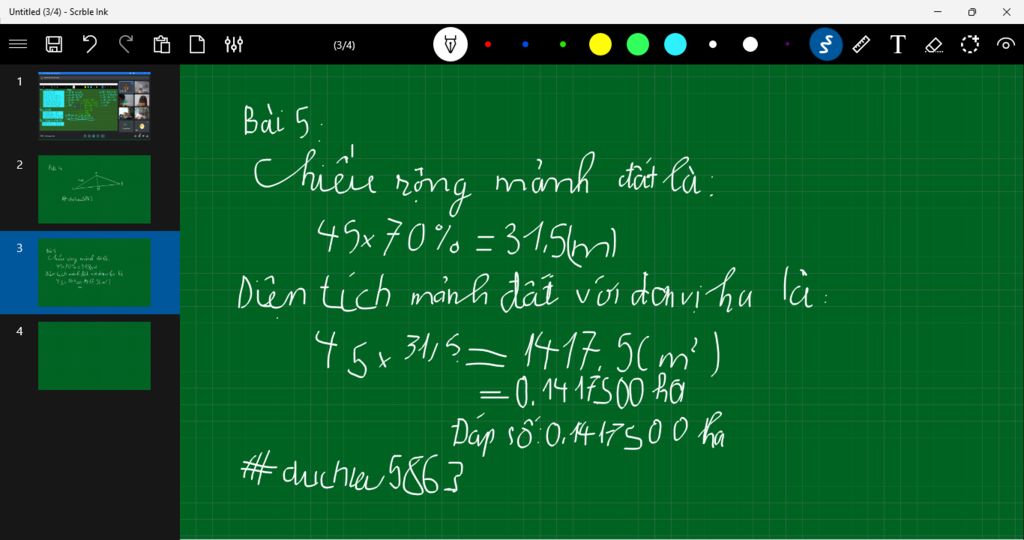 Untitled (3/4) - Scrble Ink
(3/4)
T
1
2
3
4
Bài 5:
Chiều rộng mảnh đất là:
45 × 70% = 31,5(m)
Diện tích mảnh đất với đơn vị ha là:
45 × 31,5 = 1417,5(m²)
= 0.1417500 ha
Đáp số: 0.1417500 ha